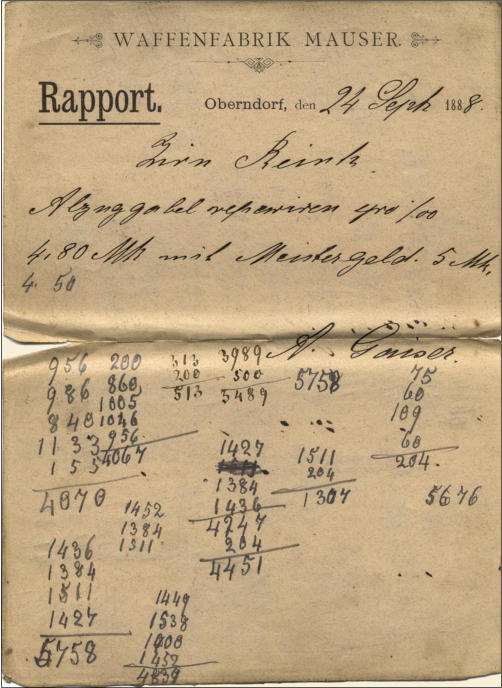 WAFFENFABRIK MAUSER.
Rapport.
Oberndorf, den 24 Sept 1888.
Zirn Reinh.
Abzuggabel repariren pro %00
4.80 Mk mit Meistergeld. 5 Mk.
4. 50
A. Gaiser.
956 200 313 3989 75
986 860 200 500 5758 60
840 1005 513 3489 109
1133 1046 60
155 956 1427 1511 204.
4067 1384 204
4070 1452 1436 1307 5676
1384 4247
1436 1511 204
1384 4451
1511 1449
1427 1538
5758 1400
1452
4839